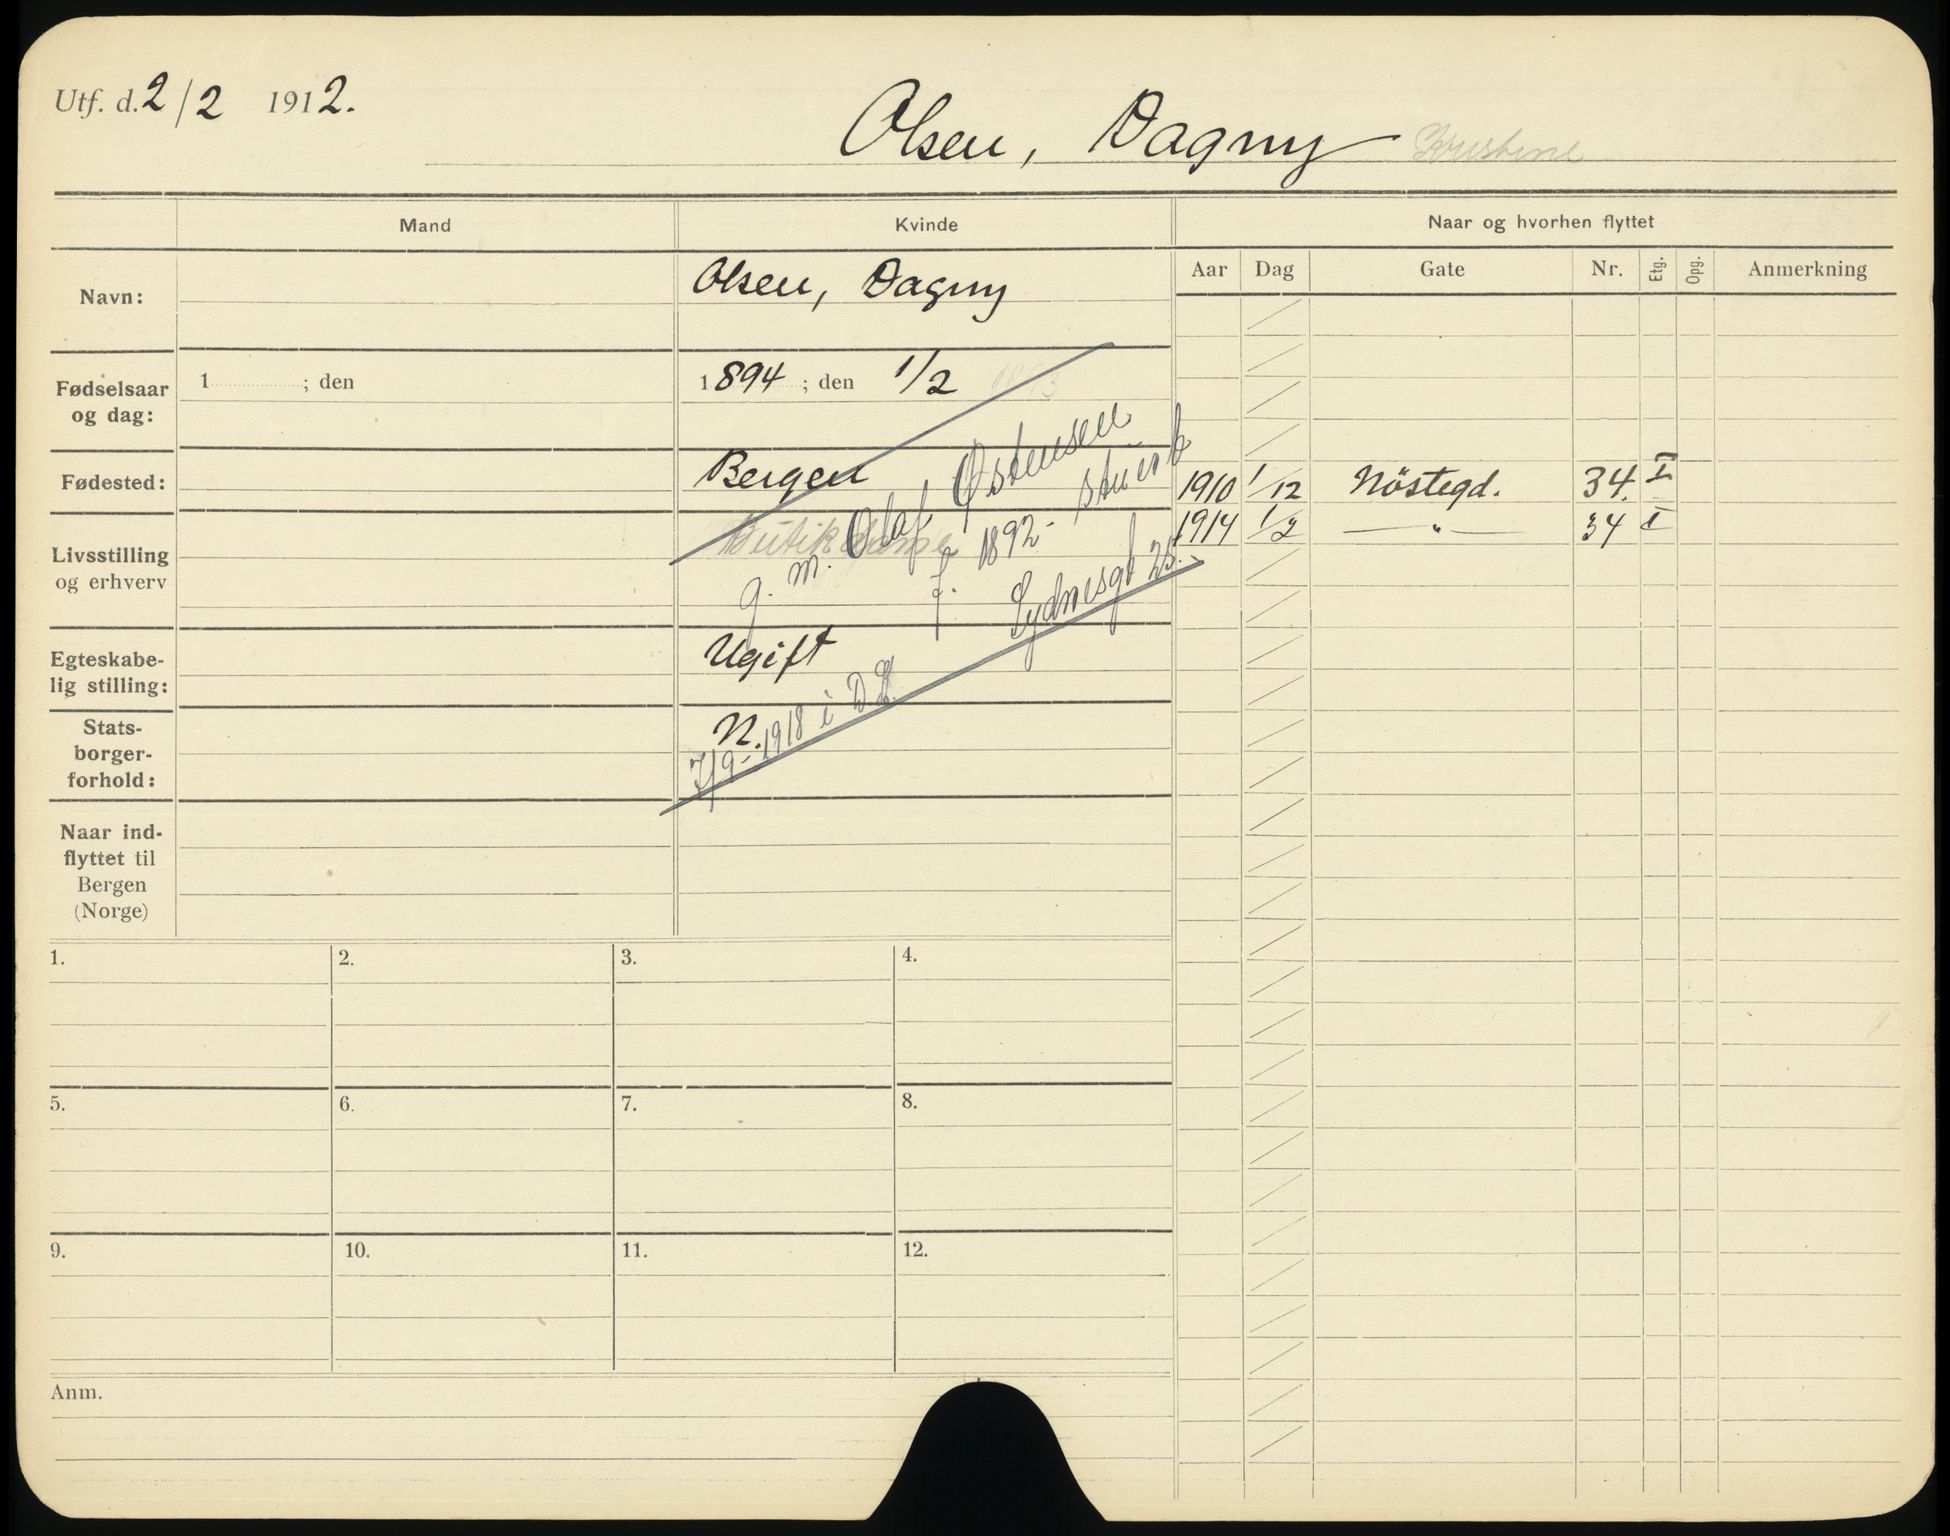 Utf. d. 2/2 1912.
Olsen, Dagny Kristine
Mand
Kvinde
Naar og hvorhen flyttet
Aar Dag Gate Nr. Etg. Opg. Anmerkning
Navn:
Olsen, Dagny
Fødselsaar
og dag:
1 ; den
1894 ; den 1/2 1893
Fødested:
Bergen
1910 1/12 Nöstegd. 34. I
1914 1/2 — " — 34 I
Livsstilling
og erhverv
g. m. Olaf Østensen
f. 1892 - stuert
Sydnesgt 25.
7/9-1918 i D.K.
Egteskabe-
lig stilling:
Ugift
Stats-
borger-
forhold:
N.
Naar ind-
flyttet til
Bergen
(Norge)
1. 2. 3. 4.
5. 6. 7. 8.
9. 10. 11. 12.
Anm.